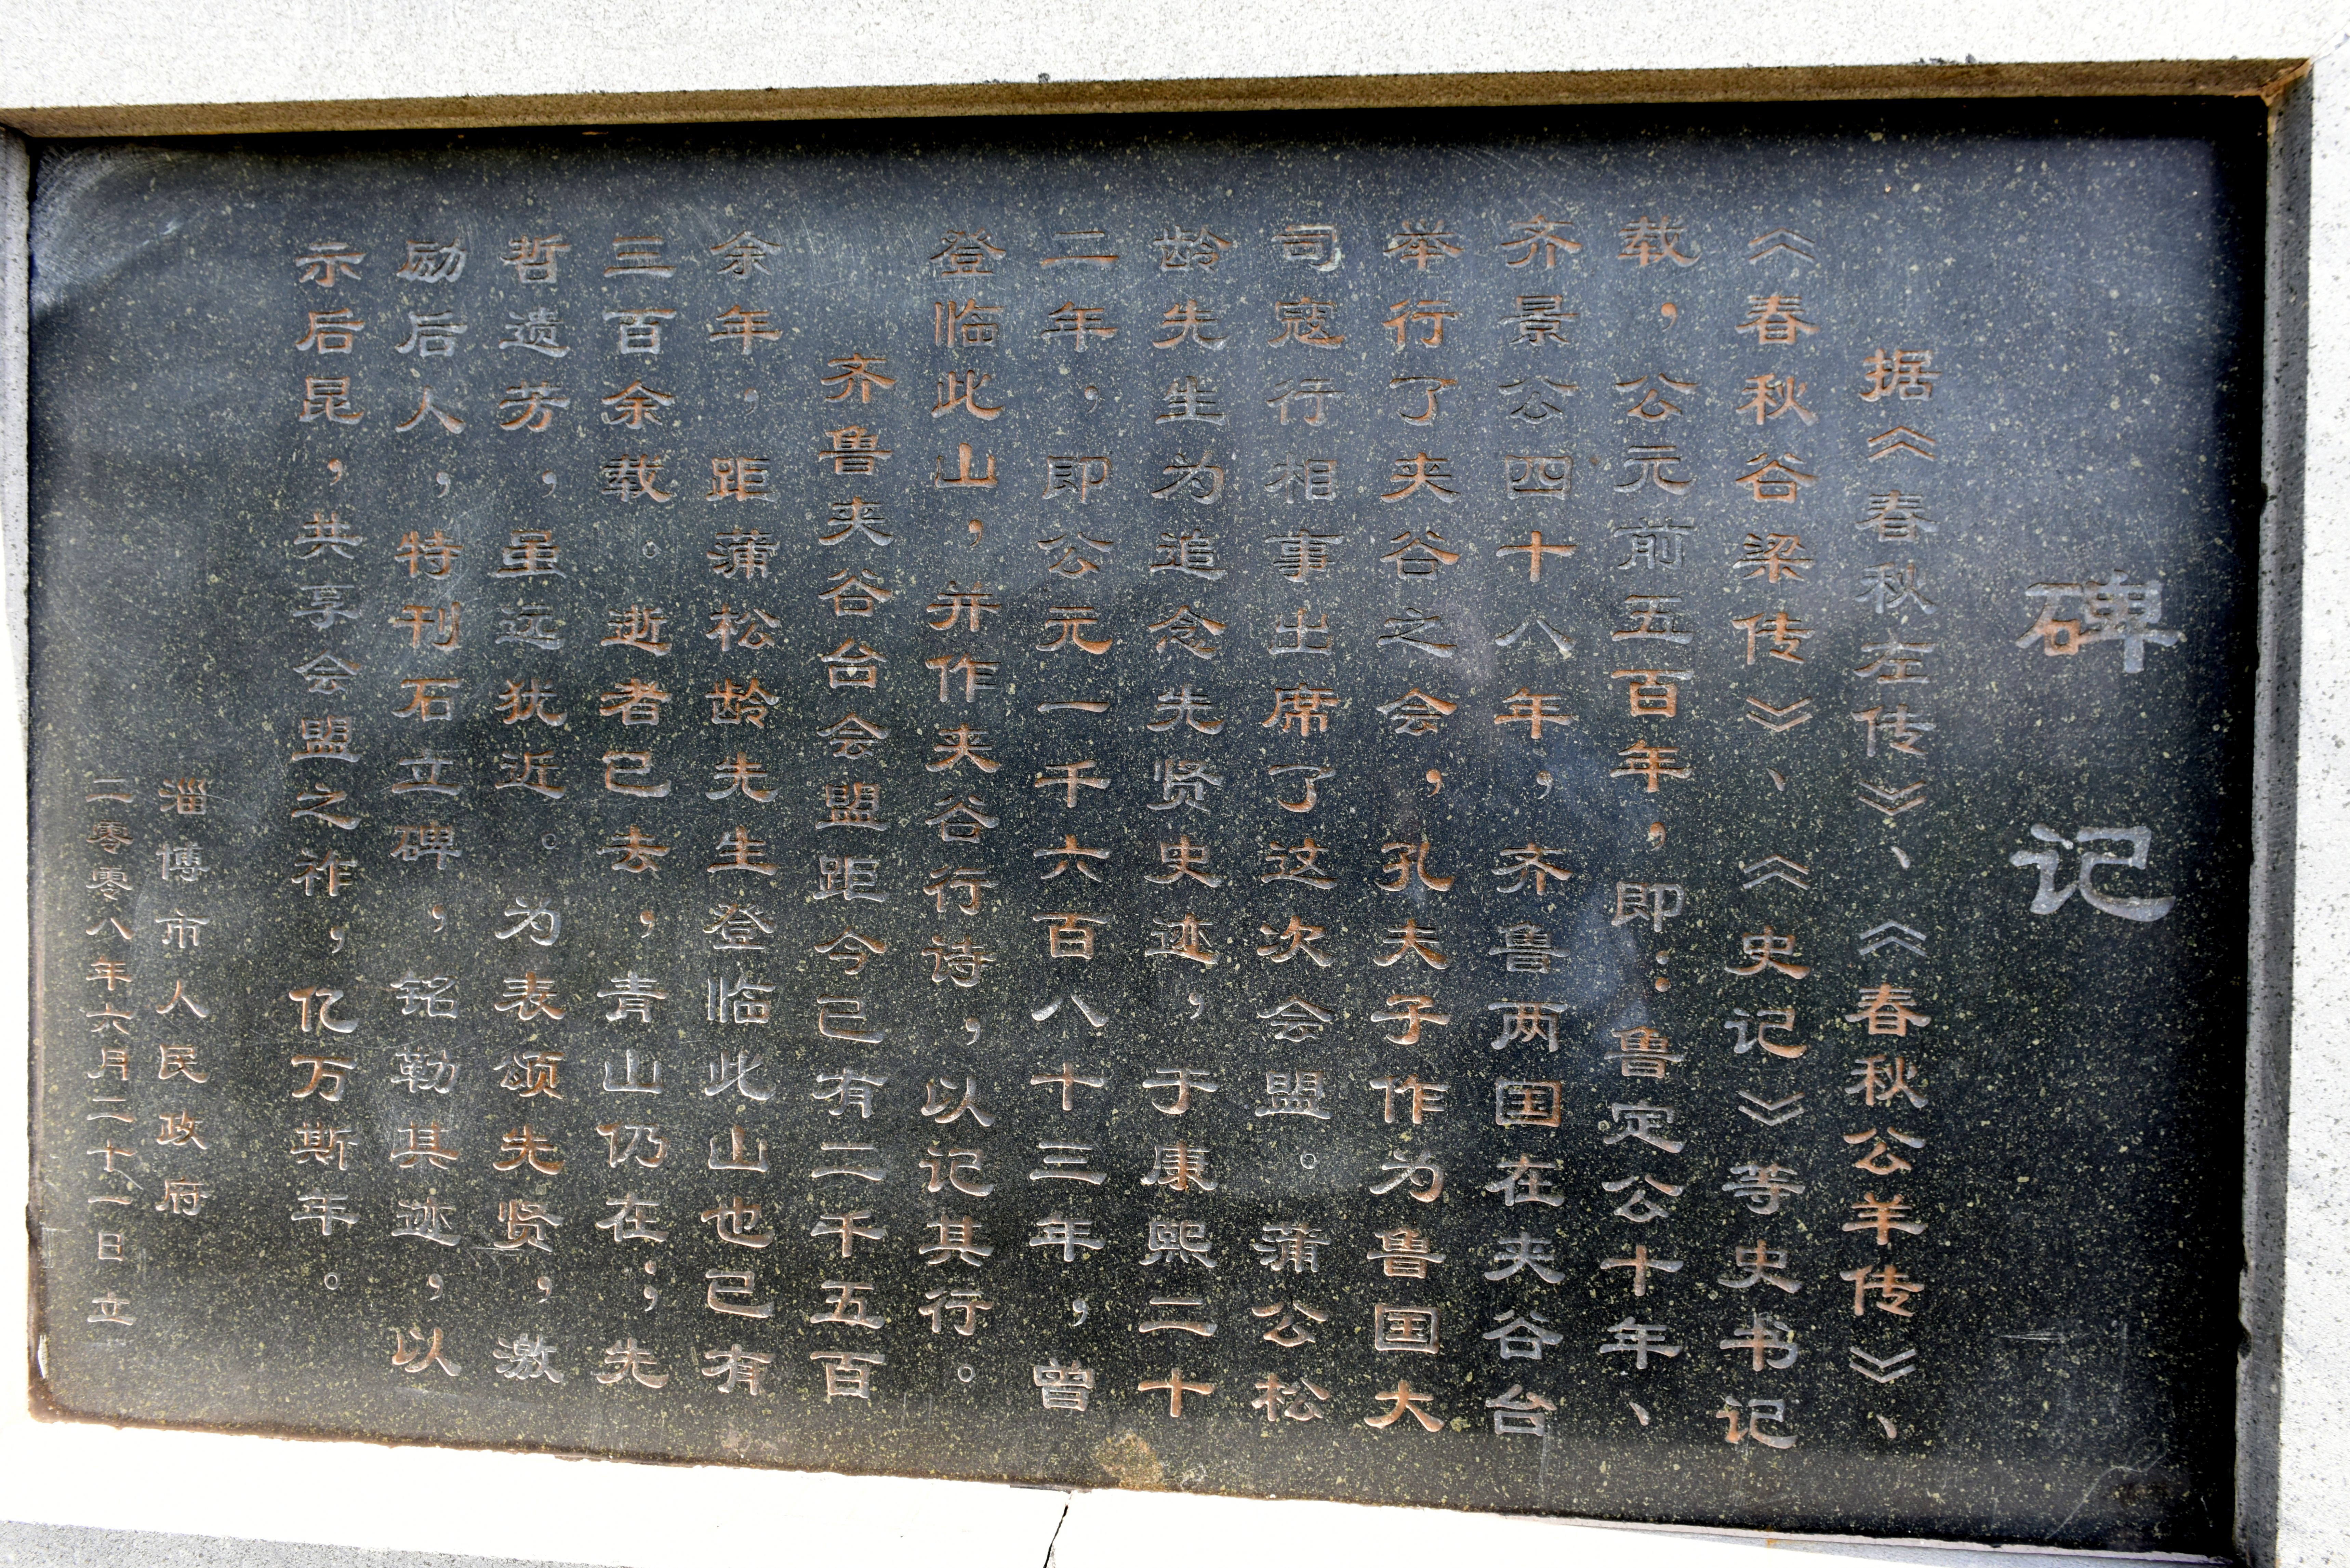 碑记
据《春秋左传》、《春秋公羊传》、
《春秋谷梁传》、《史记》等史书记
载，公元前五百年，即：鲁定公十年、
齐景公四十八年，齐鲁两国在夹谷台
举行了夹谷之会，孔夫子作为鲁国大
司寇行相事出席了这次会盟。蒲公松
龄先生为追念先贤史迹，于康熙二十
二年，即公元一千六百八十三年，曾
登临此山，并作夹谷行诗，以记其行。
齐鲁夹谷台会盟距今已有二千五百
余年，距蒲松龄先生登临此山也已有
三百余载。逝者已去，青山仍在；先
哲遗芳，虽远犹近。为表颂先贤，激
励后人，特刊石立碑，铭勒其迹，以
示后昆，共享会盟之祚，亿万斯年。
淄博市人民政府
二零零八年六月二十一日立